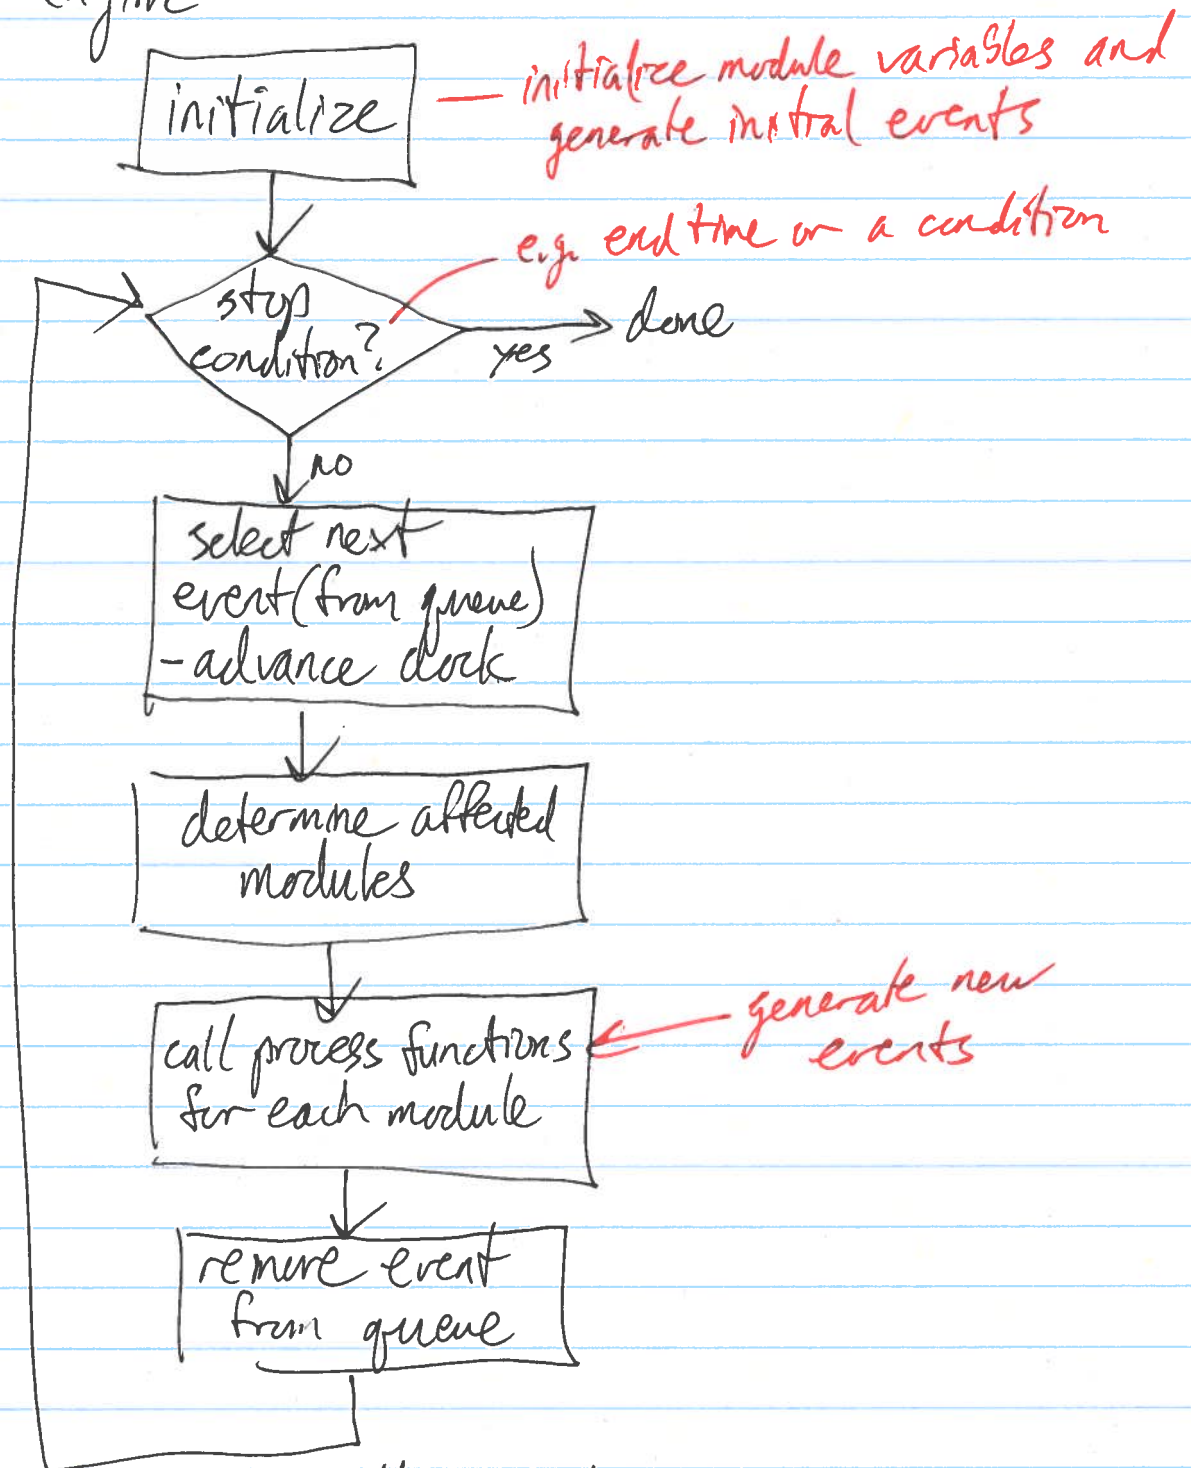 engine
initialize
— initialize module variables and
generate initial events
e.g. end time or a condition
stop
condition?
yes
done
no
select next
event (from queue)
- advance clock
determine affected
modules
call process functions
for each module
generate new
events
remove event
from queue